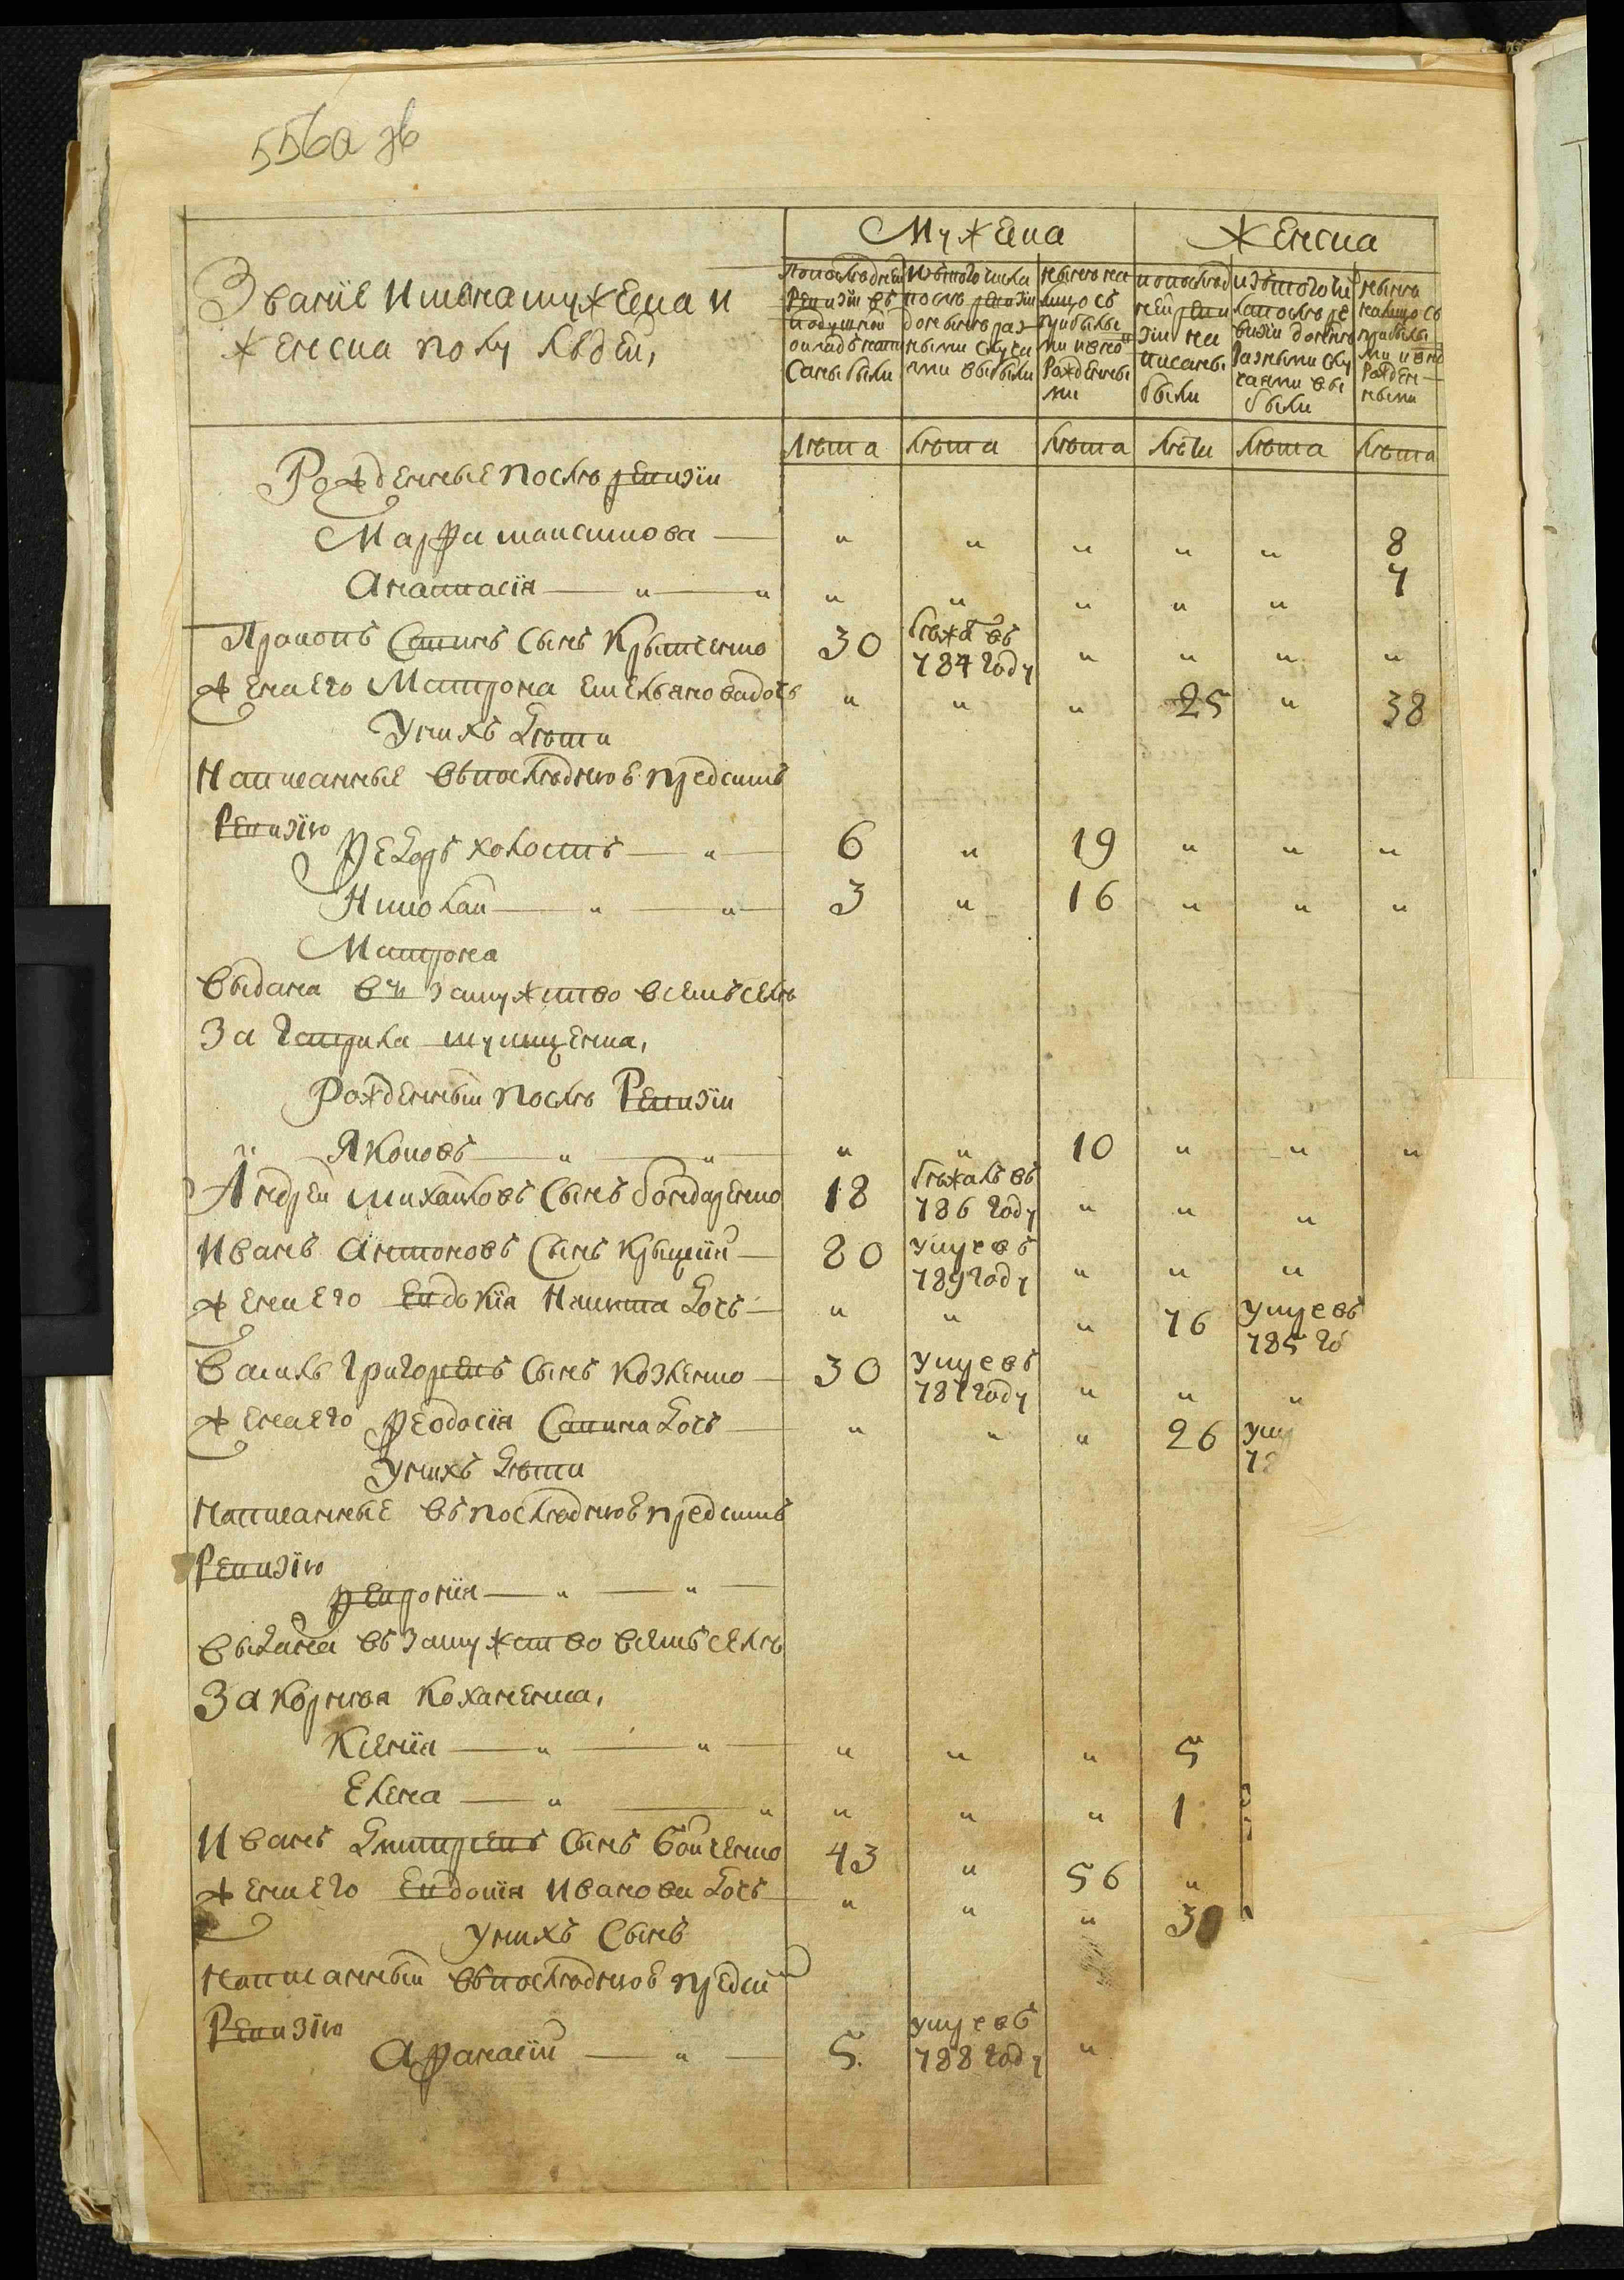 556а зв
Мужеска
Женска
Званïе и имена мужеска и
женска полу людей,
По последней
ревизïи въ
подушной
окладъ напи
саны были
Изъ того числа
послѣ ревизïи
до нынѣ раз
ными случа
ями выбыли
Нынѣ на
лицо съ
прибылы
ми и вновь
рожденны
ми
По послед
ней реви
зïи на
писаны
были
Изъ того чи
ла послѣ ре
визïи до нынѣ
разными слу
чаями вы
были
Нынѣ
на лицо съ
прибылы
ми и вновь
рожден
ными
лѣта лѣта лѣта лѣты лѣта лѣта
Рожденные послѣ ревизïи
Марфа максимова — " " " " " 8
Анастасïя — " — " " " " " " 7
Пракопъ Савинъ сынъ Крывченко 30 бежалъ въ 784 году " " " "
жена его Матрона емельянова дочь " " " 25 " 38
У нихъ дѣти
Написанные въ последнюю пред симъ
ревизïю
Федоръ холостъ — " — 6 " 19 " " "
Николай — " — " — 3 " 16 " " "
Матрона
выдана въ замужство в семъ селѣ
За Гаврила
Рожденный послѣ Ревизïи
Яковъ — " — " — " " 10 " " "
Андрей михайловъ сынъ бондаренко 18 бежалъ въ 786 году " " "
Иванъ Антоновъ сынъ Крыцкïй — 80 умре въ 789 году " " "
жена его Евдокïя Никита дочь — " " " 76 умре въ 785 го
Василь Григорьевъ сынъ Козленко — 30 умре въ 787 году " " "
жена его Феодосïя Савина дочь — " " " 26 ум 78
У нихъ дѣти
Написанные въ последнюю пред симъ
Ревизïю
Феврония — " — " —
выдана въ замужство в семъ селѣ
За корнѣя коханенка,
Ксенïя — " — " — " " " 5
Елена — " — " " " " 1
Иванъ Дмитрïевъ сынъ Бойченко 43 " 56 "
жена его Евдокïя Иванова дочь — " " " 30
У нихъ сынъ
Написанный въ последнюю пред си
Ревизïю
Афанасïй — " — 5. умре въ 788 году "